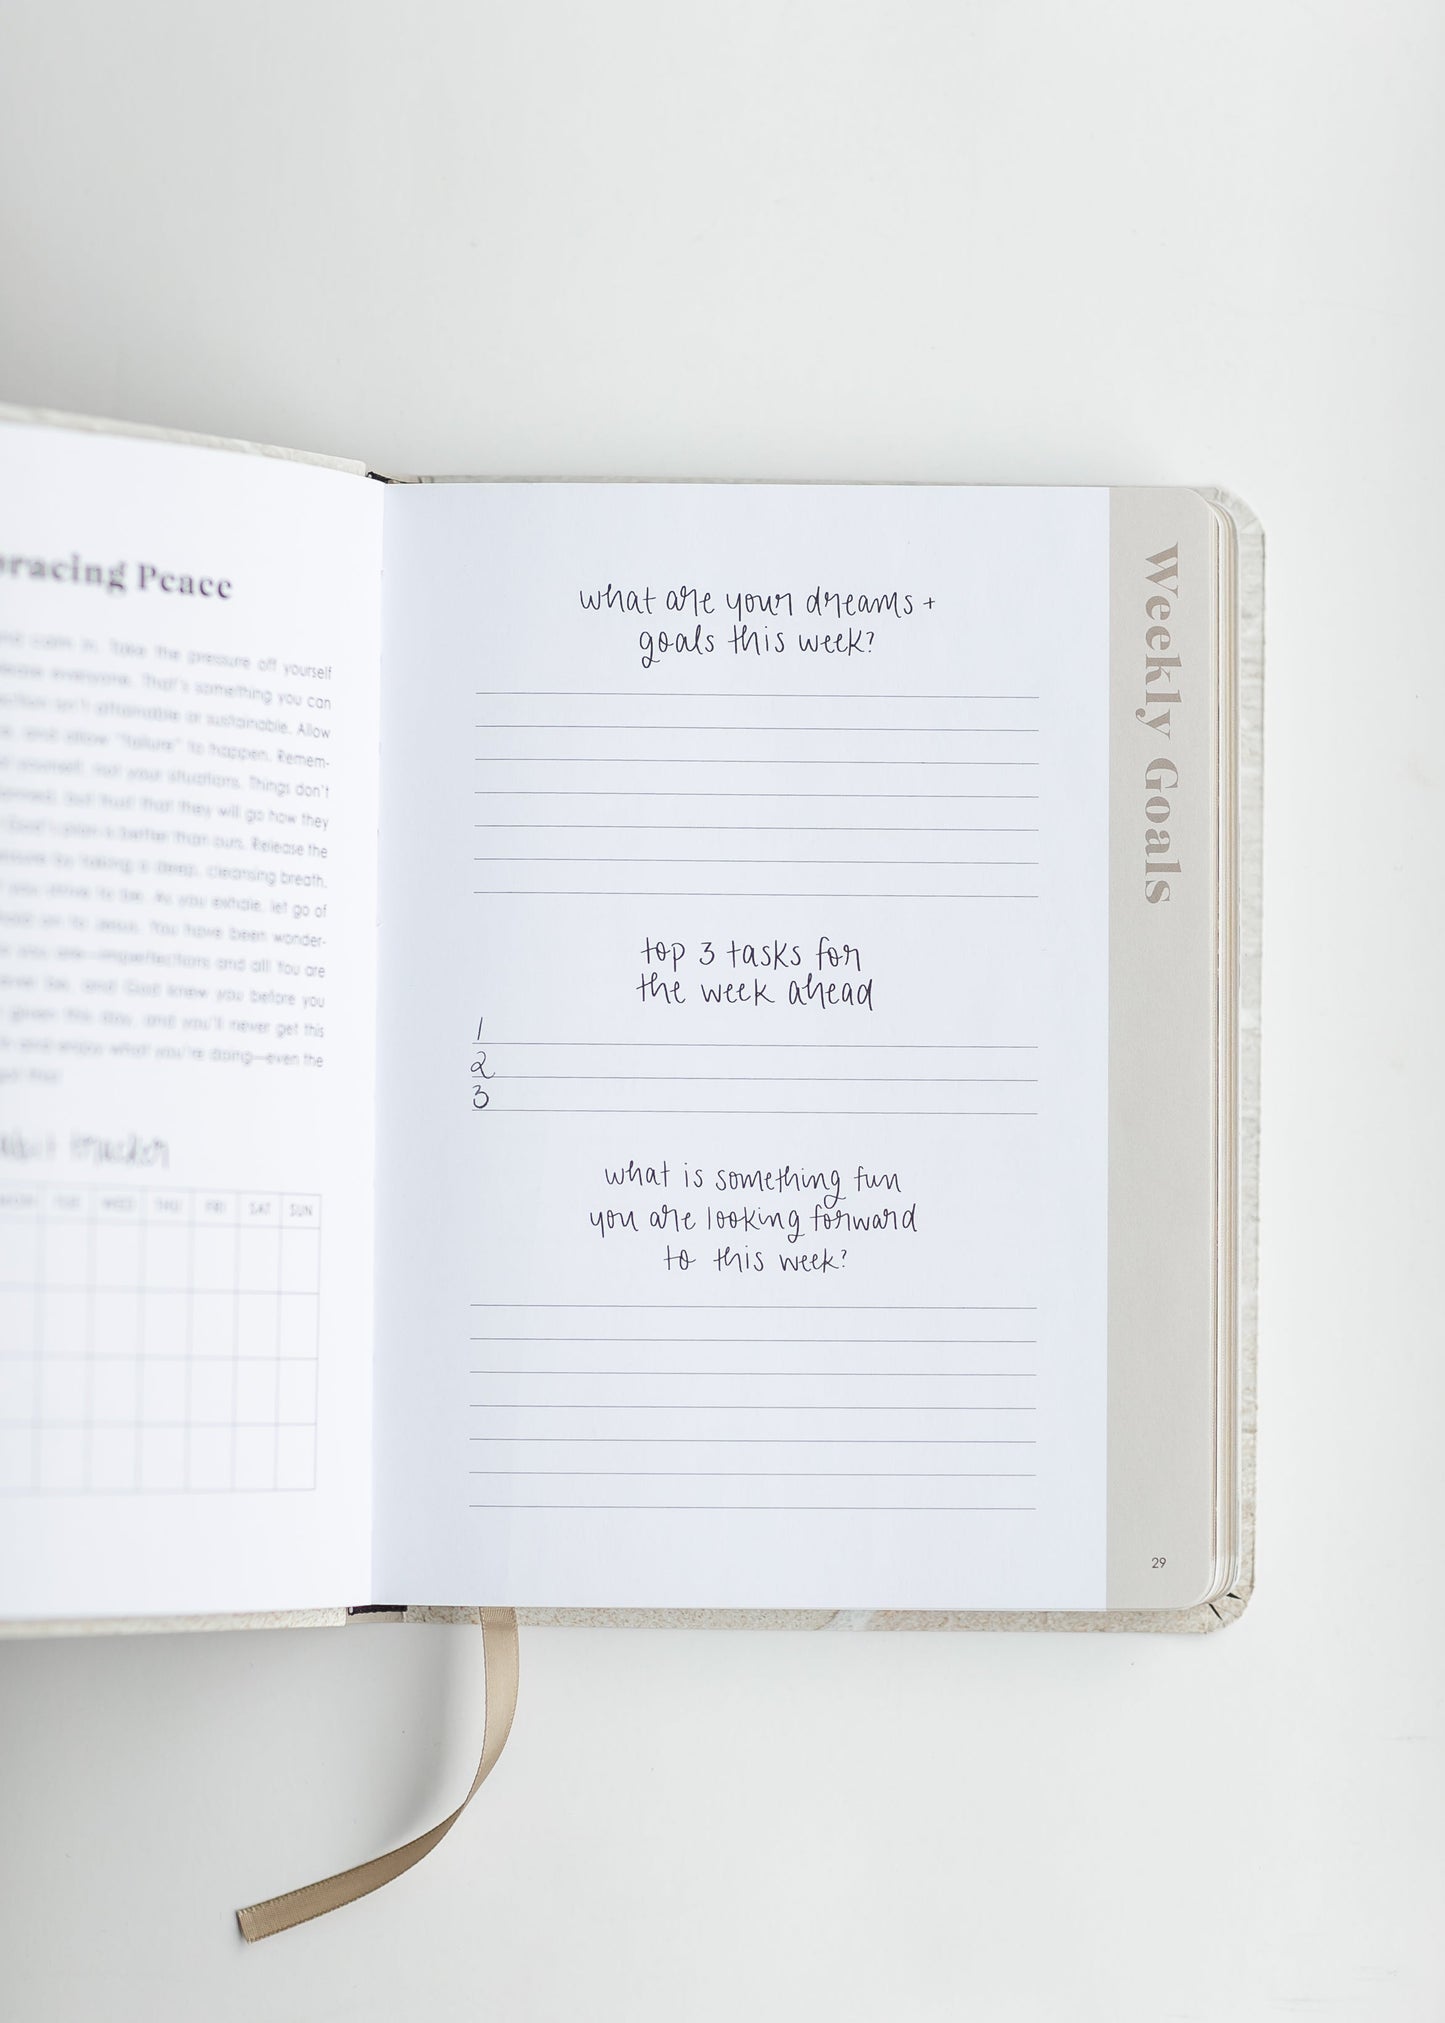 bracing Peace
and calm in. Take the pressure off yourself
please everyone. That's something you can
isn't attainable or sustainable. Allow
and allow "failure" to happen. Remem-
yourself, not your situations. Things don't
but trust that they will go how they
God's plan is better than ours. Release the
by taking a deep, cleansing breath.
you strive to be. As you exhale, let go of
hold on to Jesus. You have been wonder-
you are—imperfections and all! You are
be, and God knew you before you
given this day, and you'll never get this
and enjoy what you're doing—even the
tracker
MON TUE WED THU FRI SAT SUN
what are your dreams +
goals this week?
top 3 tasks for
the week ahead
1
2
3
what is something fun
you are looking forward
to this week?
Weekly Goals
29